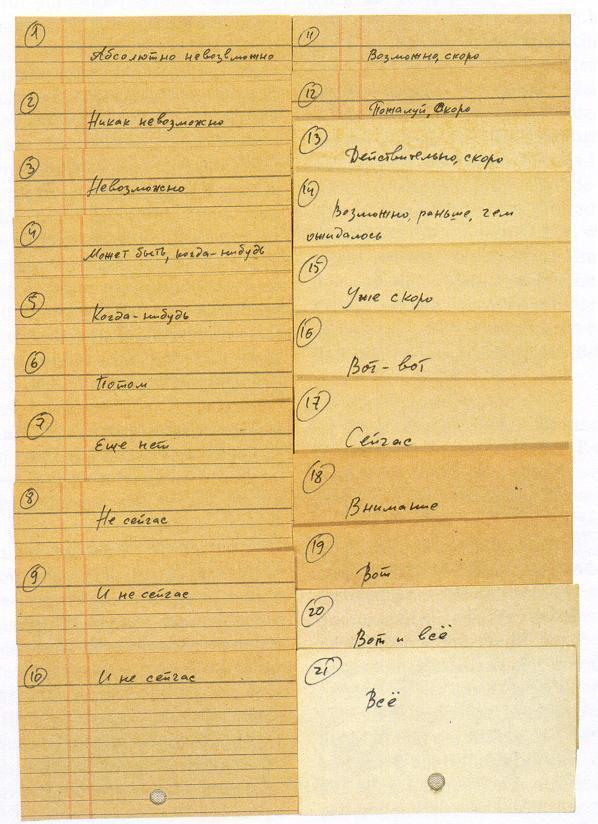 1
Абсолютно невозможно
2
Никак невозможно
3
Невозможно
4
Может быть, когда-нибудь
5
Когда-нибудь
6
Потом
7
Еще нет
8
Не сейчас
9
И не сейчас
10
И не сейчас
11
Возможно, скоро
12
Пожалуй, скоро
13
Действительно, скоро
14
Возможно, раньше, чем
ожидалось
15
Уже скоро
16
Вот-вот
17
Сейчас
18
Внимание
19
Вот
20
Вот и всё
21
Всё